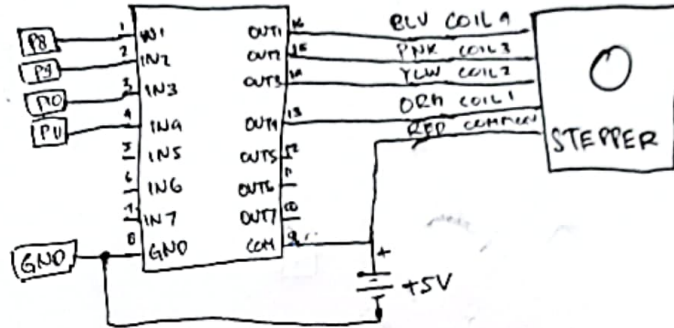 P8
P9
P10
P11
GND
1 IN1
2 IN2
3 IN3
4 IN4
5 IN5
6 IN6
7 IN7
8 GND
OUT1 16
OUT2 15
OUT3 14
OUT4 13
OUT5 12
OUT6 11
OUT7 10
COM 9
BLU COIL 4
PNK COIL 3
YLW COIL 2
ORN COIL 1
RED COMMON
STEPPER
+
+5V